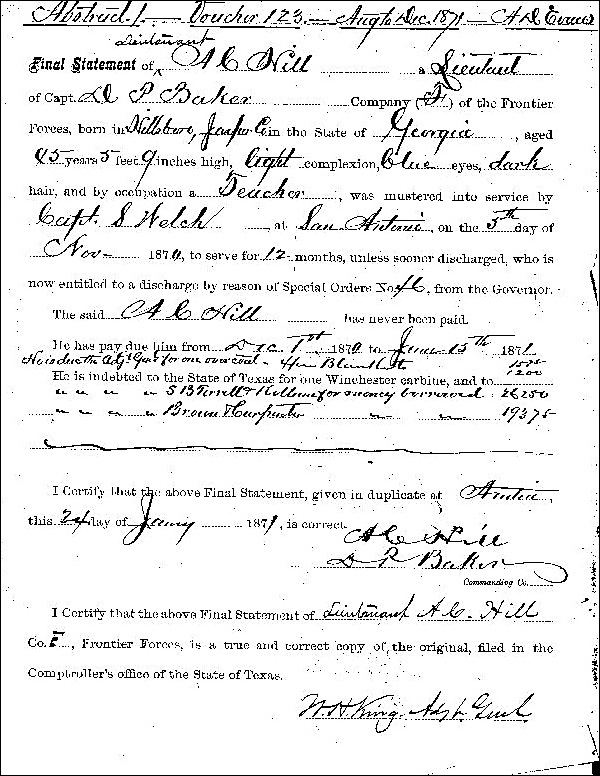 Abstract 1 — Voucher 123 — Aug to Dec. 1871 — A D Evans
Lieutenant
Final Statement of A C Hill a Lieutant
of Capt. D P Baker Company (F) of the Frontier
Forces, born in Hillsboro, Jasper Co in the State of Georgia, aged
45 years 5 feet 9 inches high, light complexion, blue eyes, dark
hair, and by occupation a Teacher, was mustered into service by
Capt. S Welch at San Antonio, on the 5th day of
Nov 1870, to serve for 12 months, unless sooner discharged, who is
now entitled to a discharge by reason of Special Orders No. 46, from the Governor.
The said A C Hill has never been paid.
He has pay due him from Dec 1st, 1870 to June 15th 1871
He is due the Adjt Genl for one overcoat
1200
He is indebted to the State of Texas for one Winchester carbine, and to
" " " " S B for money borrowed
" " " " Brown & Carpenter " " 193 75
I Certify that the above Final Statement, given in duplicate at Austin,
this 24 day of 1871, is correct.
A C Hill
D P Baker
Commanding Co.
I Certify that the above Final Statement of Lieutenant A. C. Hill
Co. F, Frontier Forces, is a true and correct copy of the original, filed in the
Comptroller's office of the State of Texas.
W. H King. Adjt. Genl.